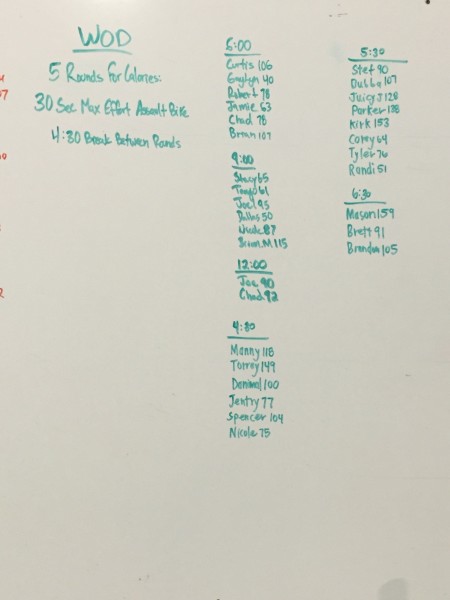 WOD
5 Rounds For Calories:
30 Sec Max Effort Assault Bike
4:30 Break Between Rounds
5:00
Curtis 106
Gaylyn 40
Robert 78
Jamie 63
Chad 78
Brian 107
9:00
Stacy 65
Tango 61
Joel 95
Dallas 50
Nicole 87
Brian.M 115
12:00
Joe 90
Chad 92
4:30
Manny 118
Torrey 149
Danimal 100
Jentry 77
Spencer 104
Nicole 75
5:30
Stef 90
Bubba 107
Juicy J 128
Parker 128
Kirk 153
Corey 64
Tyler 76
Randi 51
6:30
Mason 159
Brett 91
Brendan 105